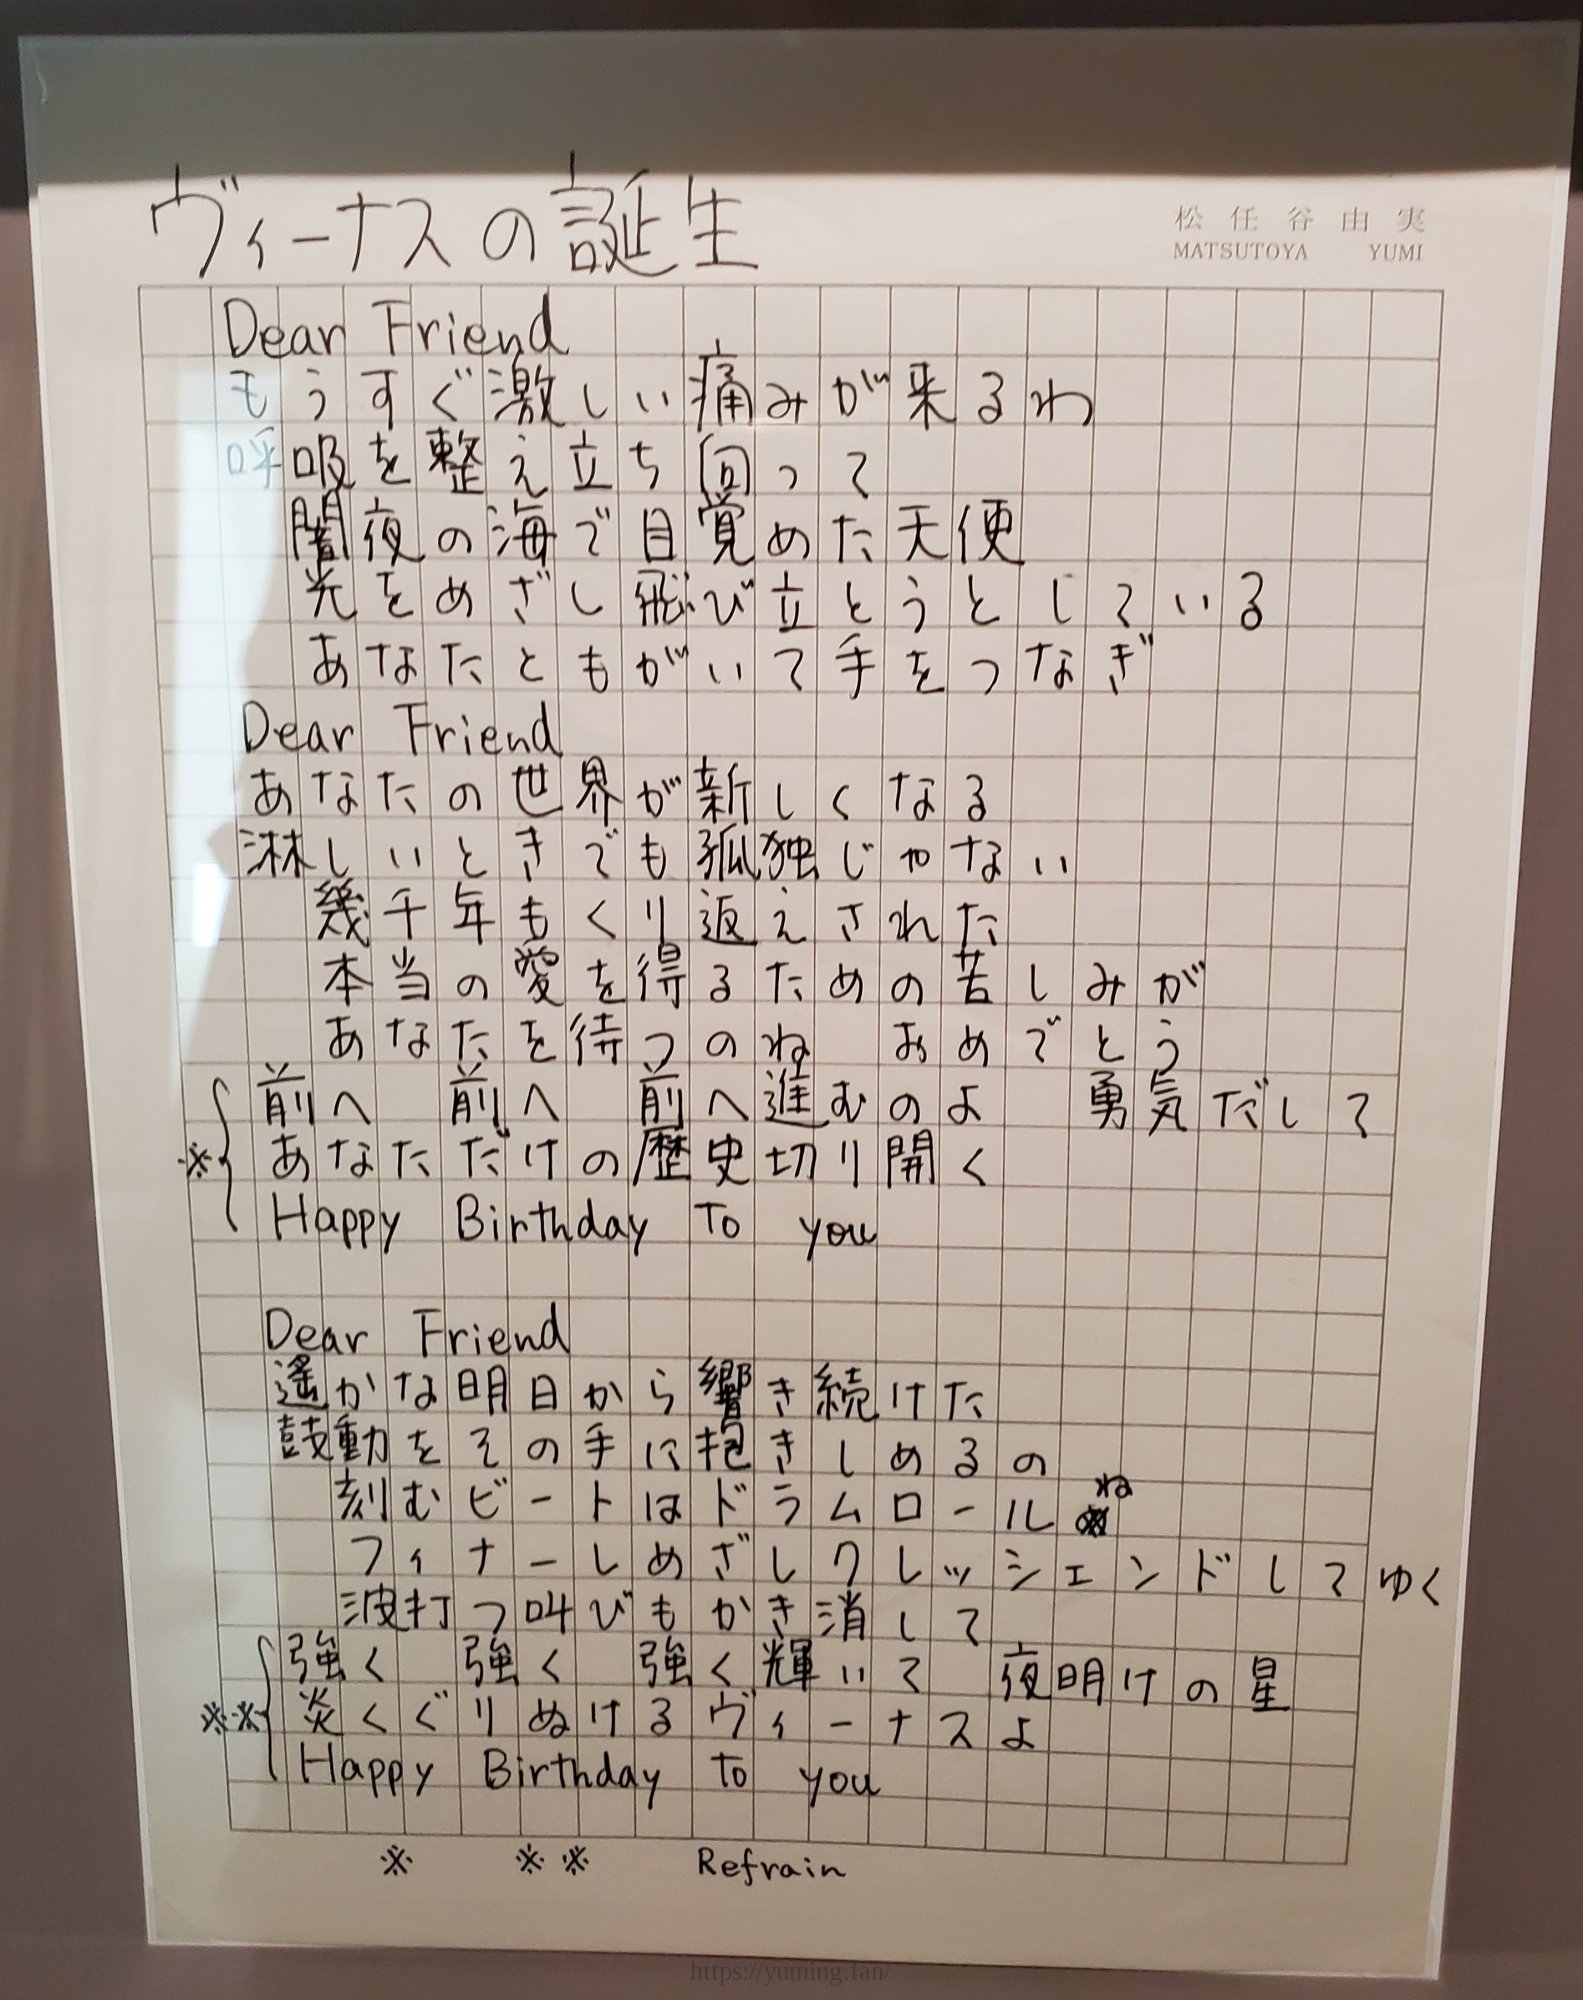 ヴィーナスの誕生
松任谷由実
MATSUTOYA YUMI
Dear Friend
もうすぐ激しい痛みが来るわ
呼吸を整え立ち向って
闇夜の海で目覚めた天使
光をめざし飛び立とうとしている
あなたともがいて手をつなぎ
Dear Friend
あなたの世界が新しくなる
淋しいときでも孤独じゃない
幾千年もくり返えされた
本当の愛を得るための苦しみが
あなたを待つのね おめでとう
前へ 前へ 前へ進むのよ 勇気だして
※ あなただけの歴史切り開く
Happy Birthday To you
Dear Friend
遙かな明日から響き続けた
鼓動をその手に抱きしめるの
刻むビートはドラムロールね
フィナーレめざしクレッシェンドしてゆく
波打つ叫びもかき消して
強く 強く 強く輝いて 夜明けの星
※※ 炎くぐりぬけるヴィーナスよ
Happy Birthday To you
※ ※※ Refrain
https://yuming.fan/